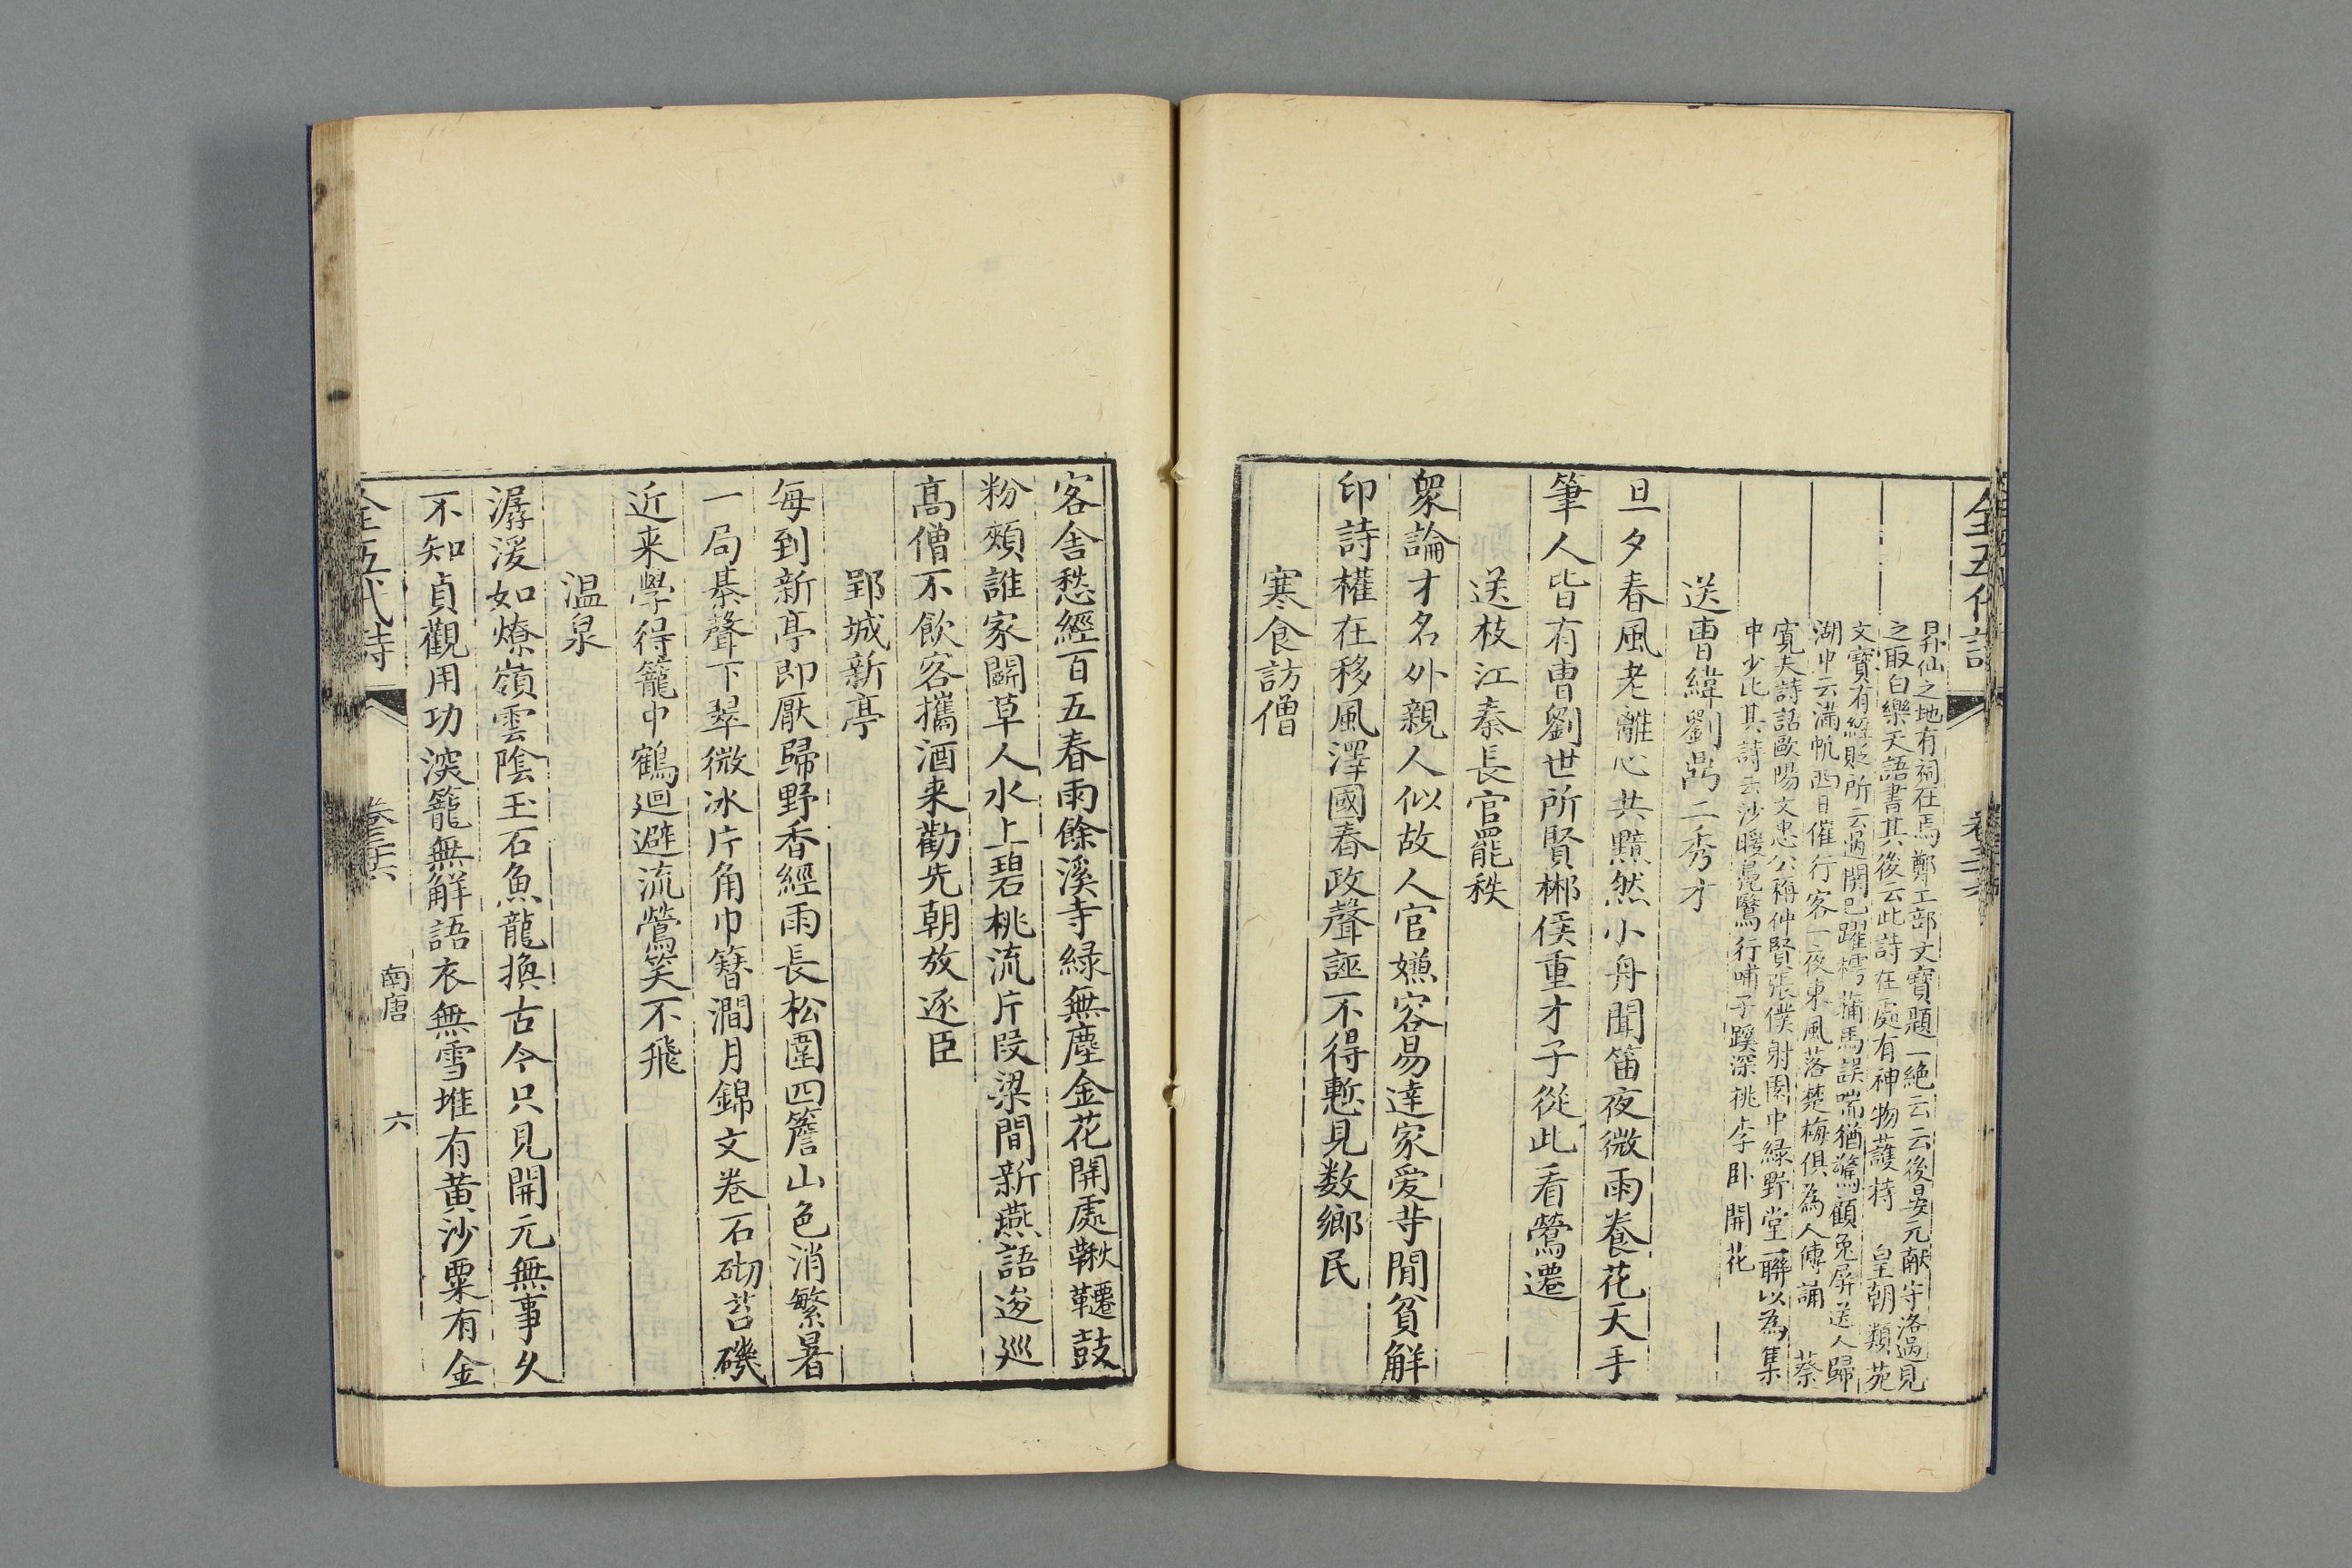 全五代詩
昇仙之地有祠在焉鄭工部文寶題一絶云云後晏元獻守洛過見
之取白樂天語書其後云此詩在處有神物護持 皇朝類苑
文寶有經貶所云過關已躍樗蒲馬誤喘猶驚顧兔屏送人歸
湖中云滿帆西日催行客一夜東風落楚梅俱為人傳誦 蔡
寛夫詩話歐陽文忠公稱仲賢張僕射園中緑野堂一聯以為集
中少此其詩云沙暖鳧鷖行哺子蹊深桃李卧開花
送曹緯劉鼎二秀才
旦夕春風老離心共黯然小舟聞笛夜微雨養花天手
筆人皆有曹劉世所賢郴侯重才子從此看鶯遷
送枝江秦長官罷秩
衆論才名外親人似故人官嫌容易達家愛等閒貧解
印詩權在移風澤國春政聲誣不得慙見数鄉民
寒食訪僧
客舍愁經百五春雨餘溪寺緑無塵金花開處鞦韆鼓
粉頰誰家鬭草人水上碧桃流片段梁間新燕語逡巡
高僧不飲客攜酒来勸先朝放逐臣
郢城新亭
每到新亭即厭歸野香經雨長松圍四簷山色消繁暑
一局棊聲下翠微冰片角巾簪澗月錦文卷石砌苔磯
近来學得籠中鶴迴避流鶯笑不飛
温泉
潺湲如燎嶺雲陰玉石魚龍換古今只見開元無事久
不知貞觀用功深籠無解語衣無雪堆有黄沙粟有金
全五代詩 卷三十六 南唐 六